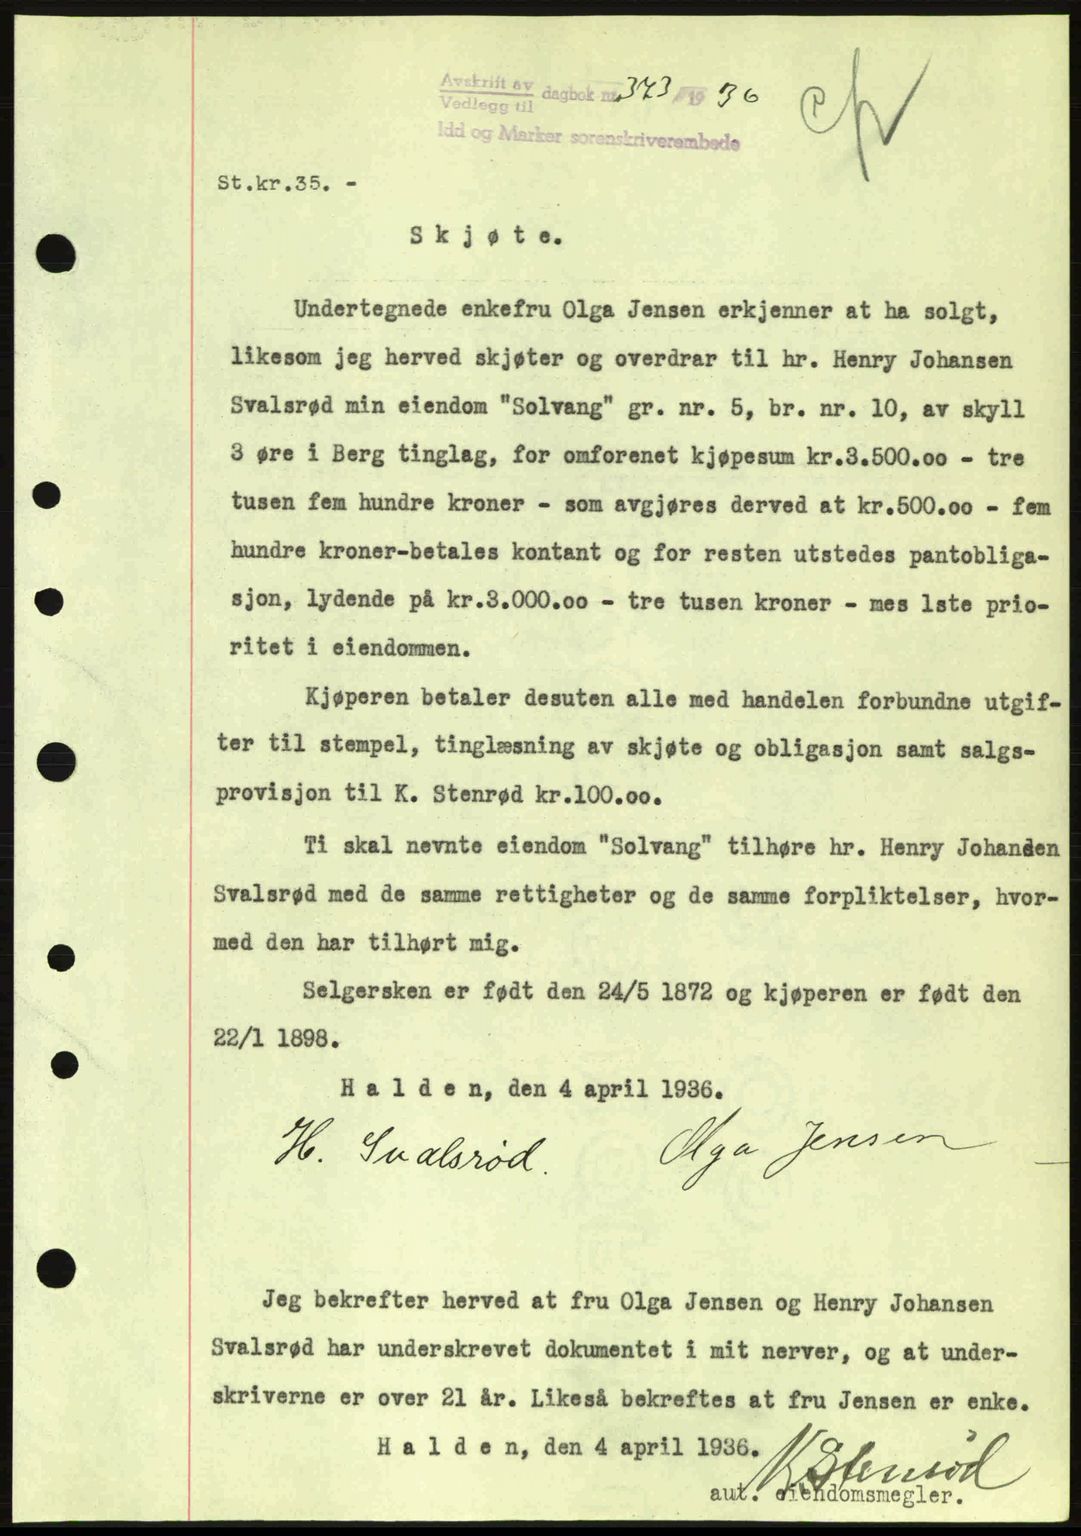 Avskrift av
Vedlegg til dagbok nr. 373 /1936
Idd og Marker sorenskriverembede
St.kr.35. -
S k j ø t e.
Undertegnede enkefru Olga Jensen erkjenner at ha solgt,
likesom jeg herved skjøter og overdrar til hr. Henry Johansen
Svalsrød min eiendom "Solvang" gr. nr. 5, br. nr. 10, av skyll
3 øre i Berg tinglag, for omforenet kjøpesum kr.3.500.oo - tre
tusen fem hundre kroner - som avgjøres derved at kr.500.oo - fem
hundre kroner-betales kontant og for resten utstedes pantobliga-
sjon, lydende på kr.3.000.oo - tre tusen kroner - mes 1ste prio-
ritet i eiendommen.
Kjøperen betaler desuten alle med handelen forbundne utgif-
ter til stempel, tinglæsning av skjøte og obligasjon samt salgs-
provisjon til K. Stenrød kr.100.oo.
Ti skal nevnte eiendom "Solvang" tilhøre hr. Henry Johansen
Svalsrød med de samme rettigheter og de samme forpliktelser, hvor-
med den har tilhørt mig.
Selgersken er født den 24/5 1872 og kjøperen er født den
22/1 1898.
H a l d e n, den 4 april 1936.
H. Svalsrød. Olga Jensen
Jeg bekrefter herved at fru Olga Jensen og Henry Johansen
Svalsrød har underskrevet dokumentet i mit nerver, og at under-
skriverne er over 21 år. Likeså bekreftes at fru Jensen er enke.
H a l d e n, den 4 april 1936.
K Stenrød
aut. eiendomsmegler.